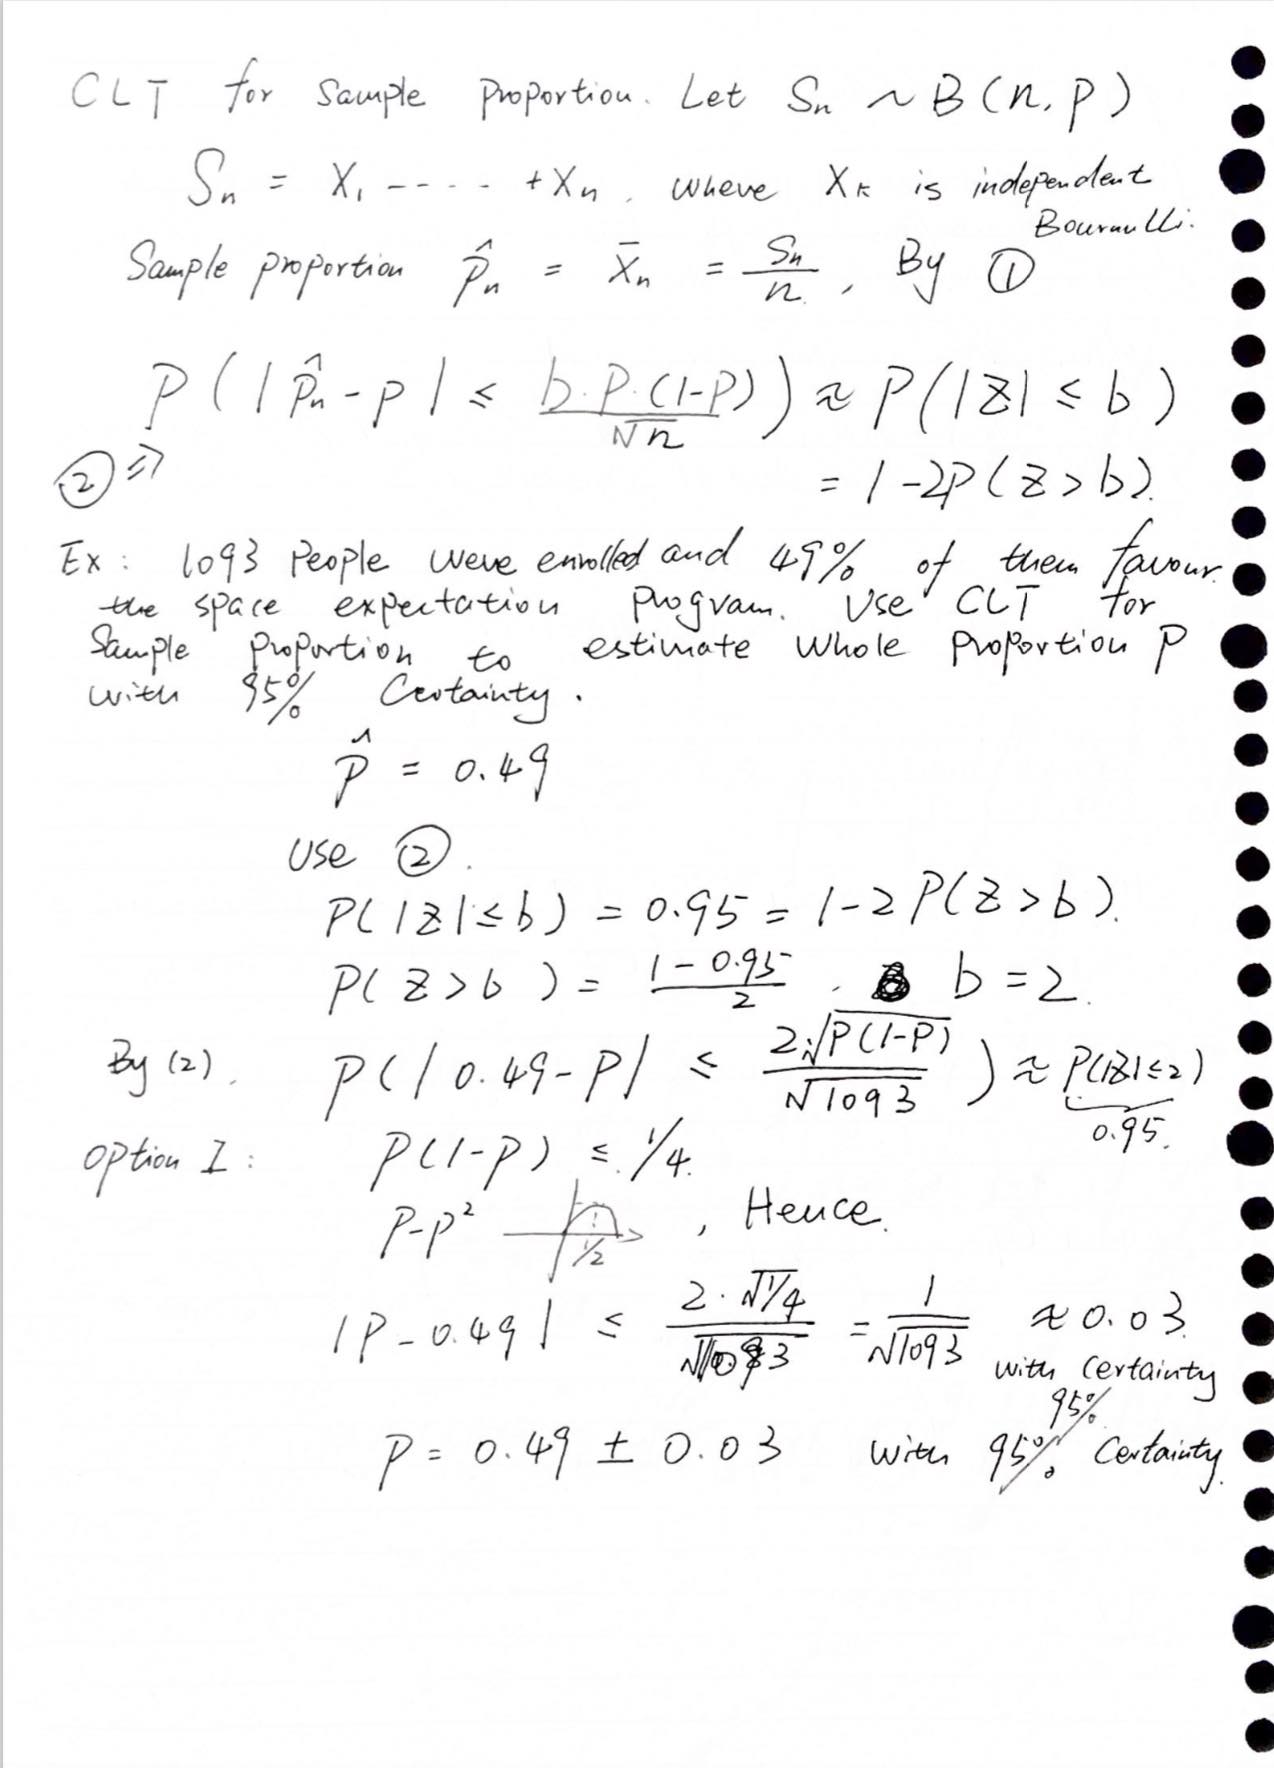 CLT for Sample Proportion. Let Sn ~ B(n, p)
Sn = X₁ ----- + Xn, where Xk is independent
Bournulli.
Sample proportion p̂n = X̄n = Sn/n, By ①
P(|p̂n - p| ≤ b·p·(1-p)/√n) ≈ P(|Z| ≤ b)
② ⇒
= 1-2P(Z>b).
Ex: 1093 People were enrolled and 49% of them favour
the space expectation program. Use CLT for
Sample proportion to estimate whole proportion P
with 95% Certainty.
p̂ = 0.49
Use ②.
P(|Z|≤b) = 0.95 = 1-2P(Z>b).
P(Z>b) = (1-0.95)/2, b=2.
By (2), P(|0.49-P| ≤ 2·√P(1-P)/√1093) ≈ P(|Z|≤2)
0.95.
Option I: P(1-P) ≤ 1/4.
P-P² 1/2, Hence.
|P-0.49| ≤ 2·√1/4/√1093 = 1/√1093 ≈ 0.03
with certainty
95%
P = 0.49 ± 0.03 with 95% Certainty.